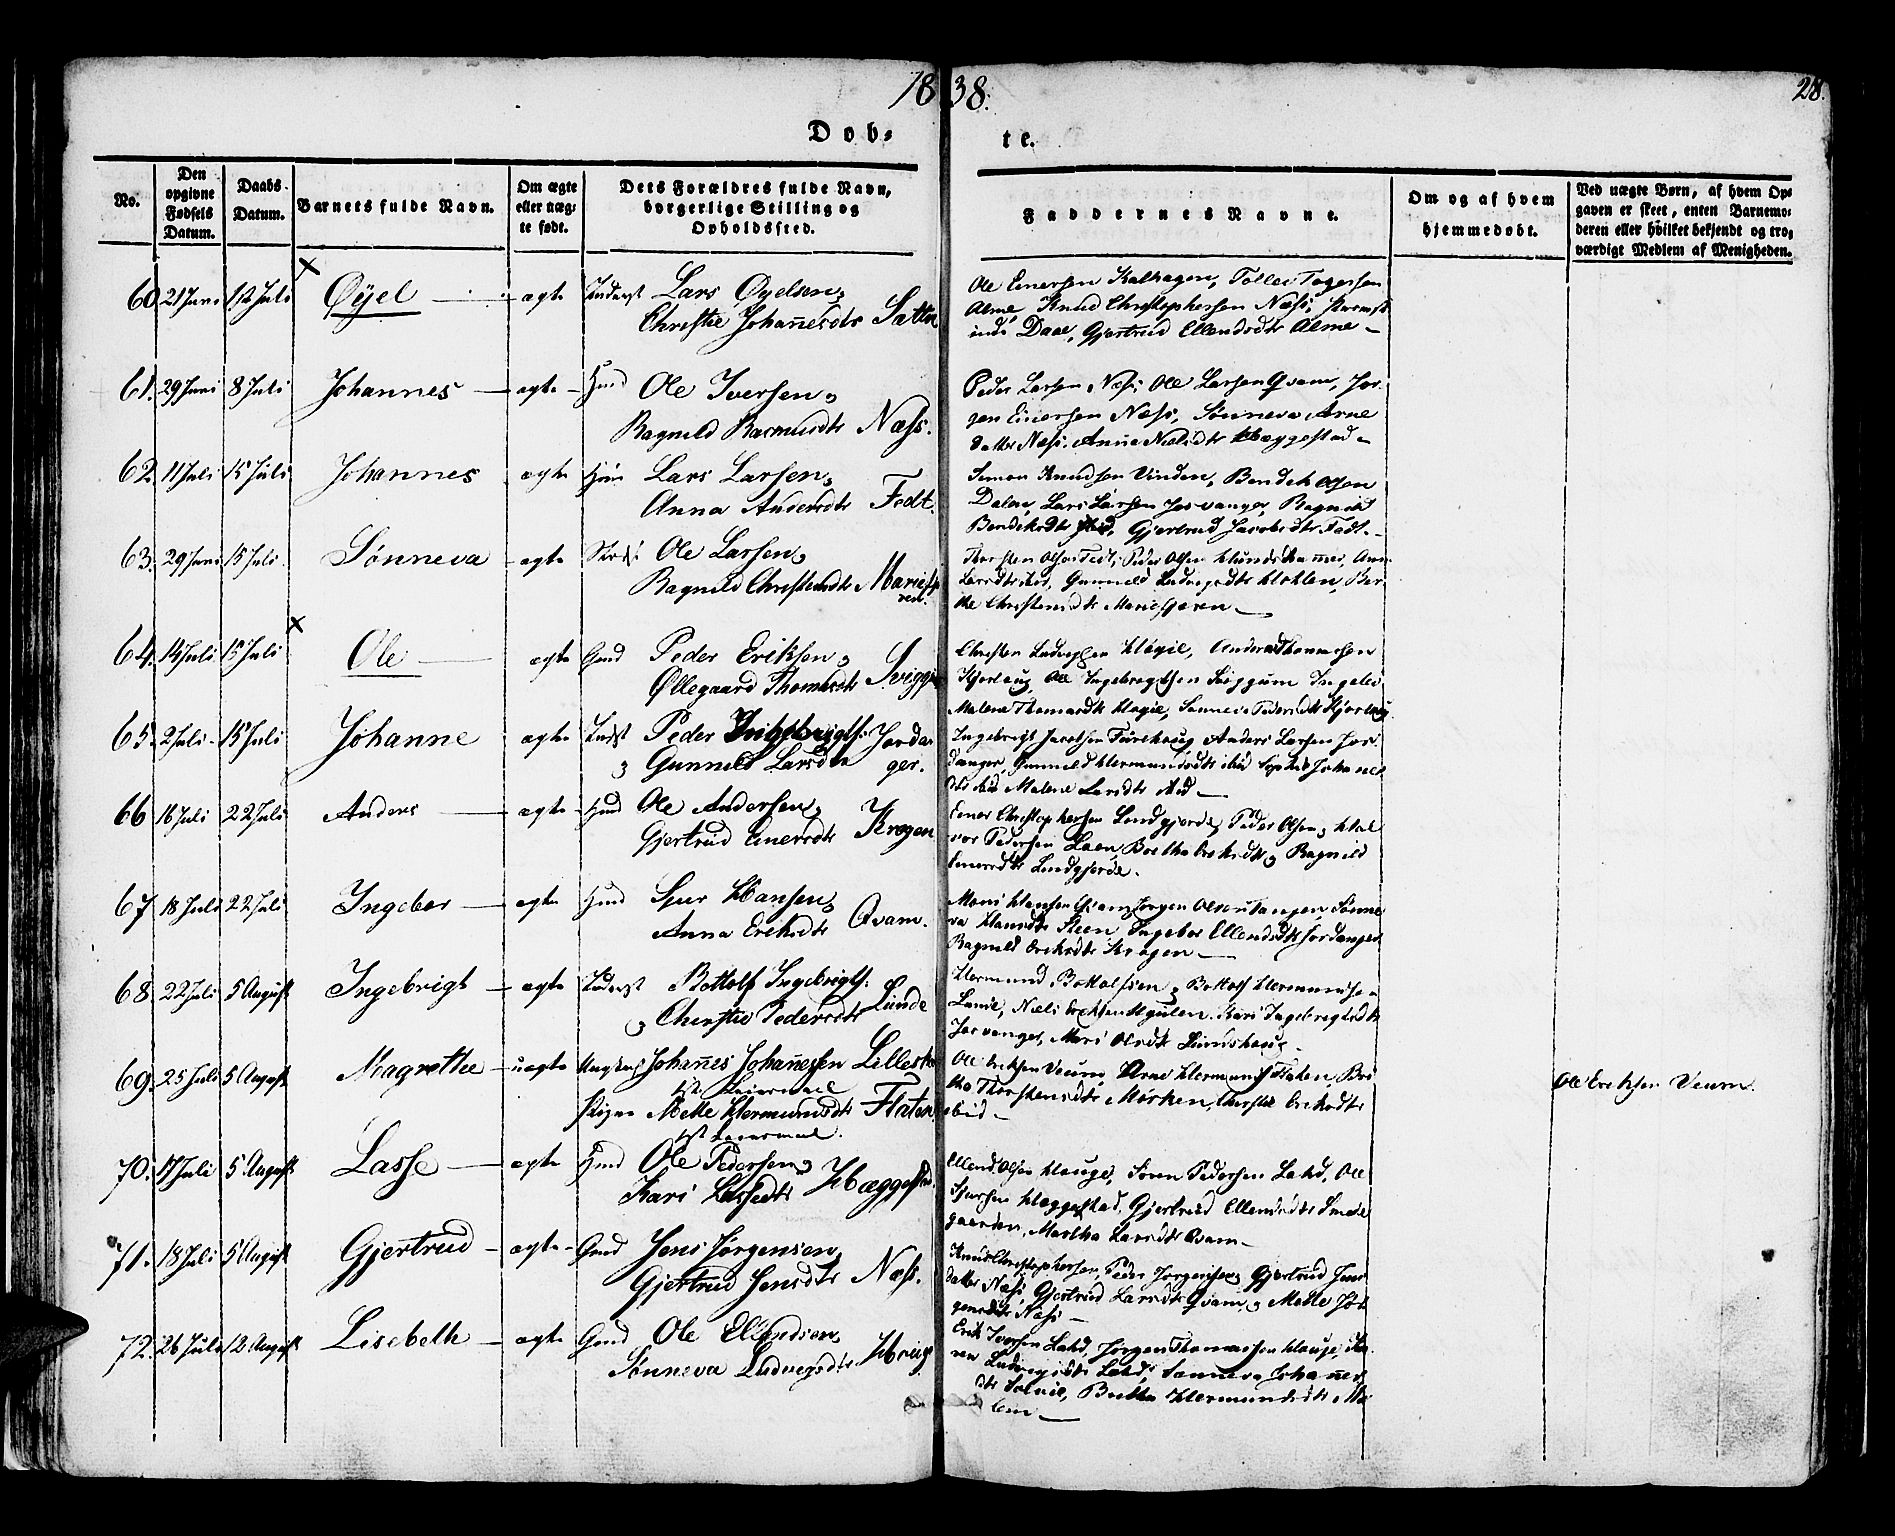 1838.
28.
Døbte.
No.
Den opgivne Fødsels Datum.
Daabs Datum.
Barnets fulde Navn.
Om ægte eller uægte født.
Dets Forældres fulde Navn, borgerlige Stilling og Opholdssted.
Faddernes Navne.
Om og af hvem hjemmedøbt.
Ved uægte Børn, af hvem Opgaven er skeet, enten Barnemoderen eller hvilket bekjendt og troværdigt Medlem af Menigheden.
60. 21 Juni 1st Juli Øÿel ægte Inderst Lars Øyelsen,
Christie Johañesdtr Sætten
Ole Einersen Kalhagen, Tollei Togersen
Alme, Knud Christophersen Næss,
Daae, Gjertrud Ellendsdtr Alme
61. 29 Juni 8 Juli Johannes ægte Gmd Ole Iversen,
Ragnild Rasmusdtr Næss.
Peder Larsen Næss, Ole Larsen Qvam, Jør-
gen Einersen Næss, Sønneva Arne
datter Næss, Anna Nielsdtr Hæggestad
62 11 Juli 15 Juli Johannes ægte Lars Larsen,
Anna Andersdtr Fedt.
Simon Knudsen Vinden, Bendik Olsen
Dalen, Lars Larsen Josvanger, Ragnild
Bendiksdtr ibid, Gjertrud Jacobsdtr Fedt.
63. 29 Juni 15 Juli. Sønneva ægte Ole Larsen,
Ragnild Christensdtr
Thorsten Olsen Fedt, Peder Olsen
Gunnild Ludvigsdtr
the Christensdtr
64. 14 Juli 15 Juli Ole ægte Gmd Peder Eriksen,
Øllegaard Thomasdtr
Christen Ludvigsen Høgie, Anders Thomasen
Kjørlaug, Ole Ingebrigtsen Suggum
Malene Thomasdtr Høgie, Sønneva Pedersdtr Kjørlaug
65. 2 Juli 15 Juli Johanne ægte Indst Peder Ingebrigts:
Gunnild Larsdtr Jordanger.
Ingebrigt Jacobsen Anders Larsen Jor-
danger, Gunnild Hermundsdtr ibid Johanes
dtr ibid Malene Larsdtr
66 16 Juli 22 Juli Anders ægte Gmd Ole Andersen,
Gjertrud Einersdtr Krogen
Einer Christophersen Lindgjerde, Peder Olsen, Hal
vor Pedersen Berthe Eriksdtr, Ragnild
Einersdtr Lindgjerde.
67 18 Juli 22 Juli Ingebor ægte Gmd Siur Hansen,
Anna Eriksdtr Qvam.
Mons Hansen Qvam, Jørgen Olsen Tangen, Sønne
va Hansdtr Steen, Ingebor Ellendsdtr Jordanger
Ragnild Eriksdtr Krogen
68. 22 Juli 5 August Ingebrigt ægte Inderst Bottolf Ingebrigts:
Christie Pedersdtr Lunde
Hermund Bottolfsen, Bottolf Hermundsen
Lunde, Niels Eriksen Kari Ingebrigtsdtr
Josvanger, Mari Olsdtr
69. 25 Juli 5 August Magrethe uægte Ungkarl Johañes Johañessen
1ste Leiermaal
Pigen Mette Hermundsdtr Flaten
1ste Leiermaal.
Ole Eriksen Veum, Arne Hermunds: Flaten, Bri
tha Thorstensdtr Mørken, Christie Eriksdtr
ibid
Ole Eriksen Veum.
70. 17 Juli 5 August Lasse ægte Gmd Ole Pedersen,
Kari Lassesdtr Hæggestad.
Ellend Olsen Hauge, Søren Pedersen Lahd, Ole
Sjursen Hæggestad, Gjertrud Ellendsdtr Smede
gaarden, Martha Larsdtr Qvam
71. 18 Juli 5 August Gjertrud ægte Gmd Jens Jørgensen,
Gjertrud Jensdtr Næss.
Knud Christophersen, Peder Jørgensen, Gjertrud Jens
datter Næss, Gjertrud Larsdtr Qvam, Mette Jør
gensdtr Næss
72. 26 Juli 12 August Lisebeth ægte Gmd Ole Ellendsen,
Sønneva Ludvigsdtr
Erik Iversen Lahd, Jørgen Thomassen Hauge,
Ludvigsdtr Lahd, Sønneva Johañes
dtr Britha Hermundsdtr